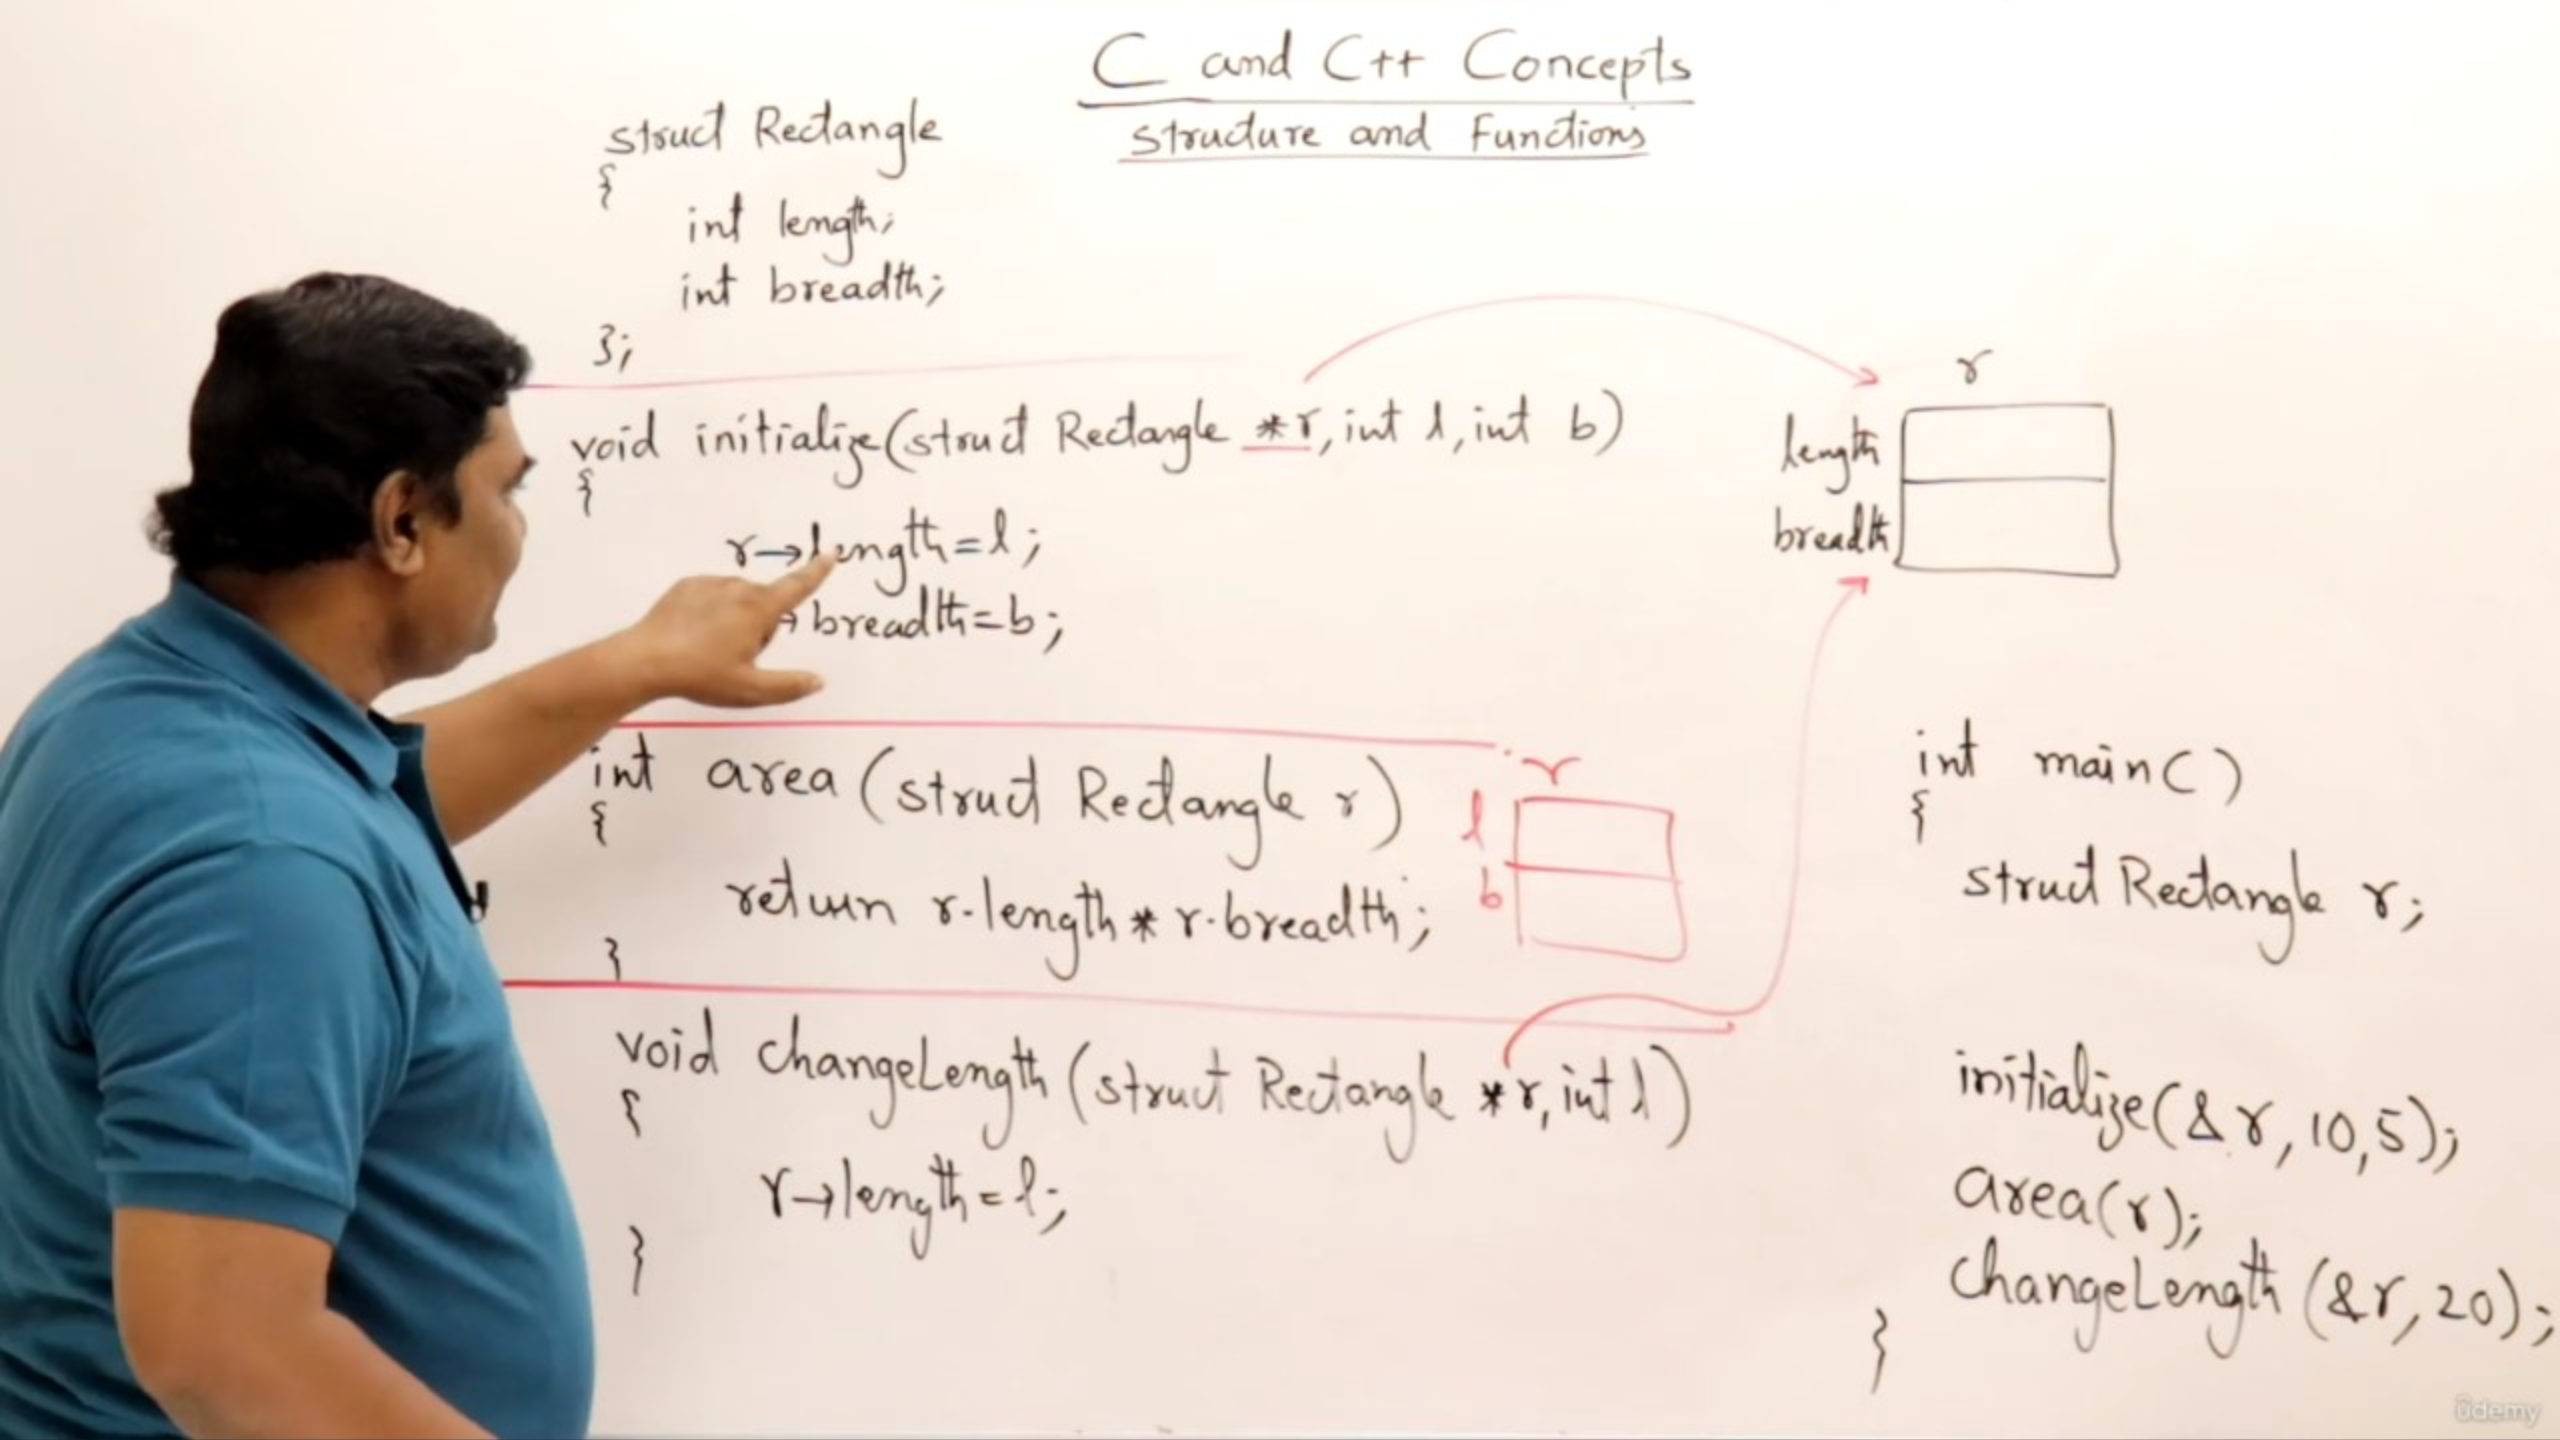 C and C++ Concepts
Structure and Functions
struct Rectangle
{
int length;
int breadth;
};
void initialize(struct Rectangle *r, int l, int b)
{
r→length=l;
→breadth=b;
int area (struct Rectangle r)
{
return r.length * r.breadth;
}
void changeLength (struct Rectangle *r, int l)
{
r→length=l;
}
r
length
breadth
r
l
b
int main()
{
struct Rectangle r;
initialize(&r, 10,5);
area(r);
changeLength (&r, 20);
}
ûdemy